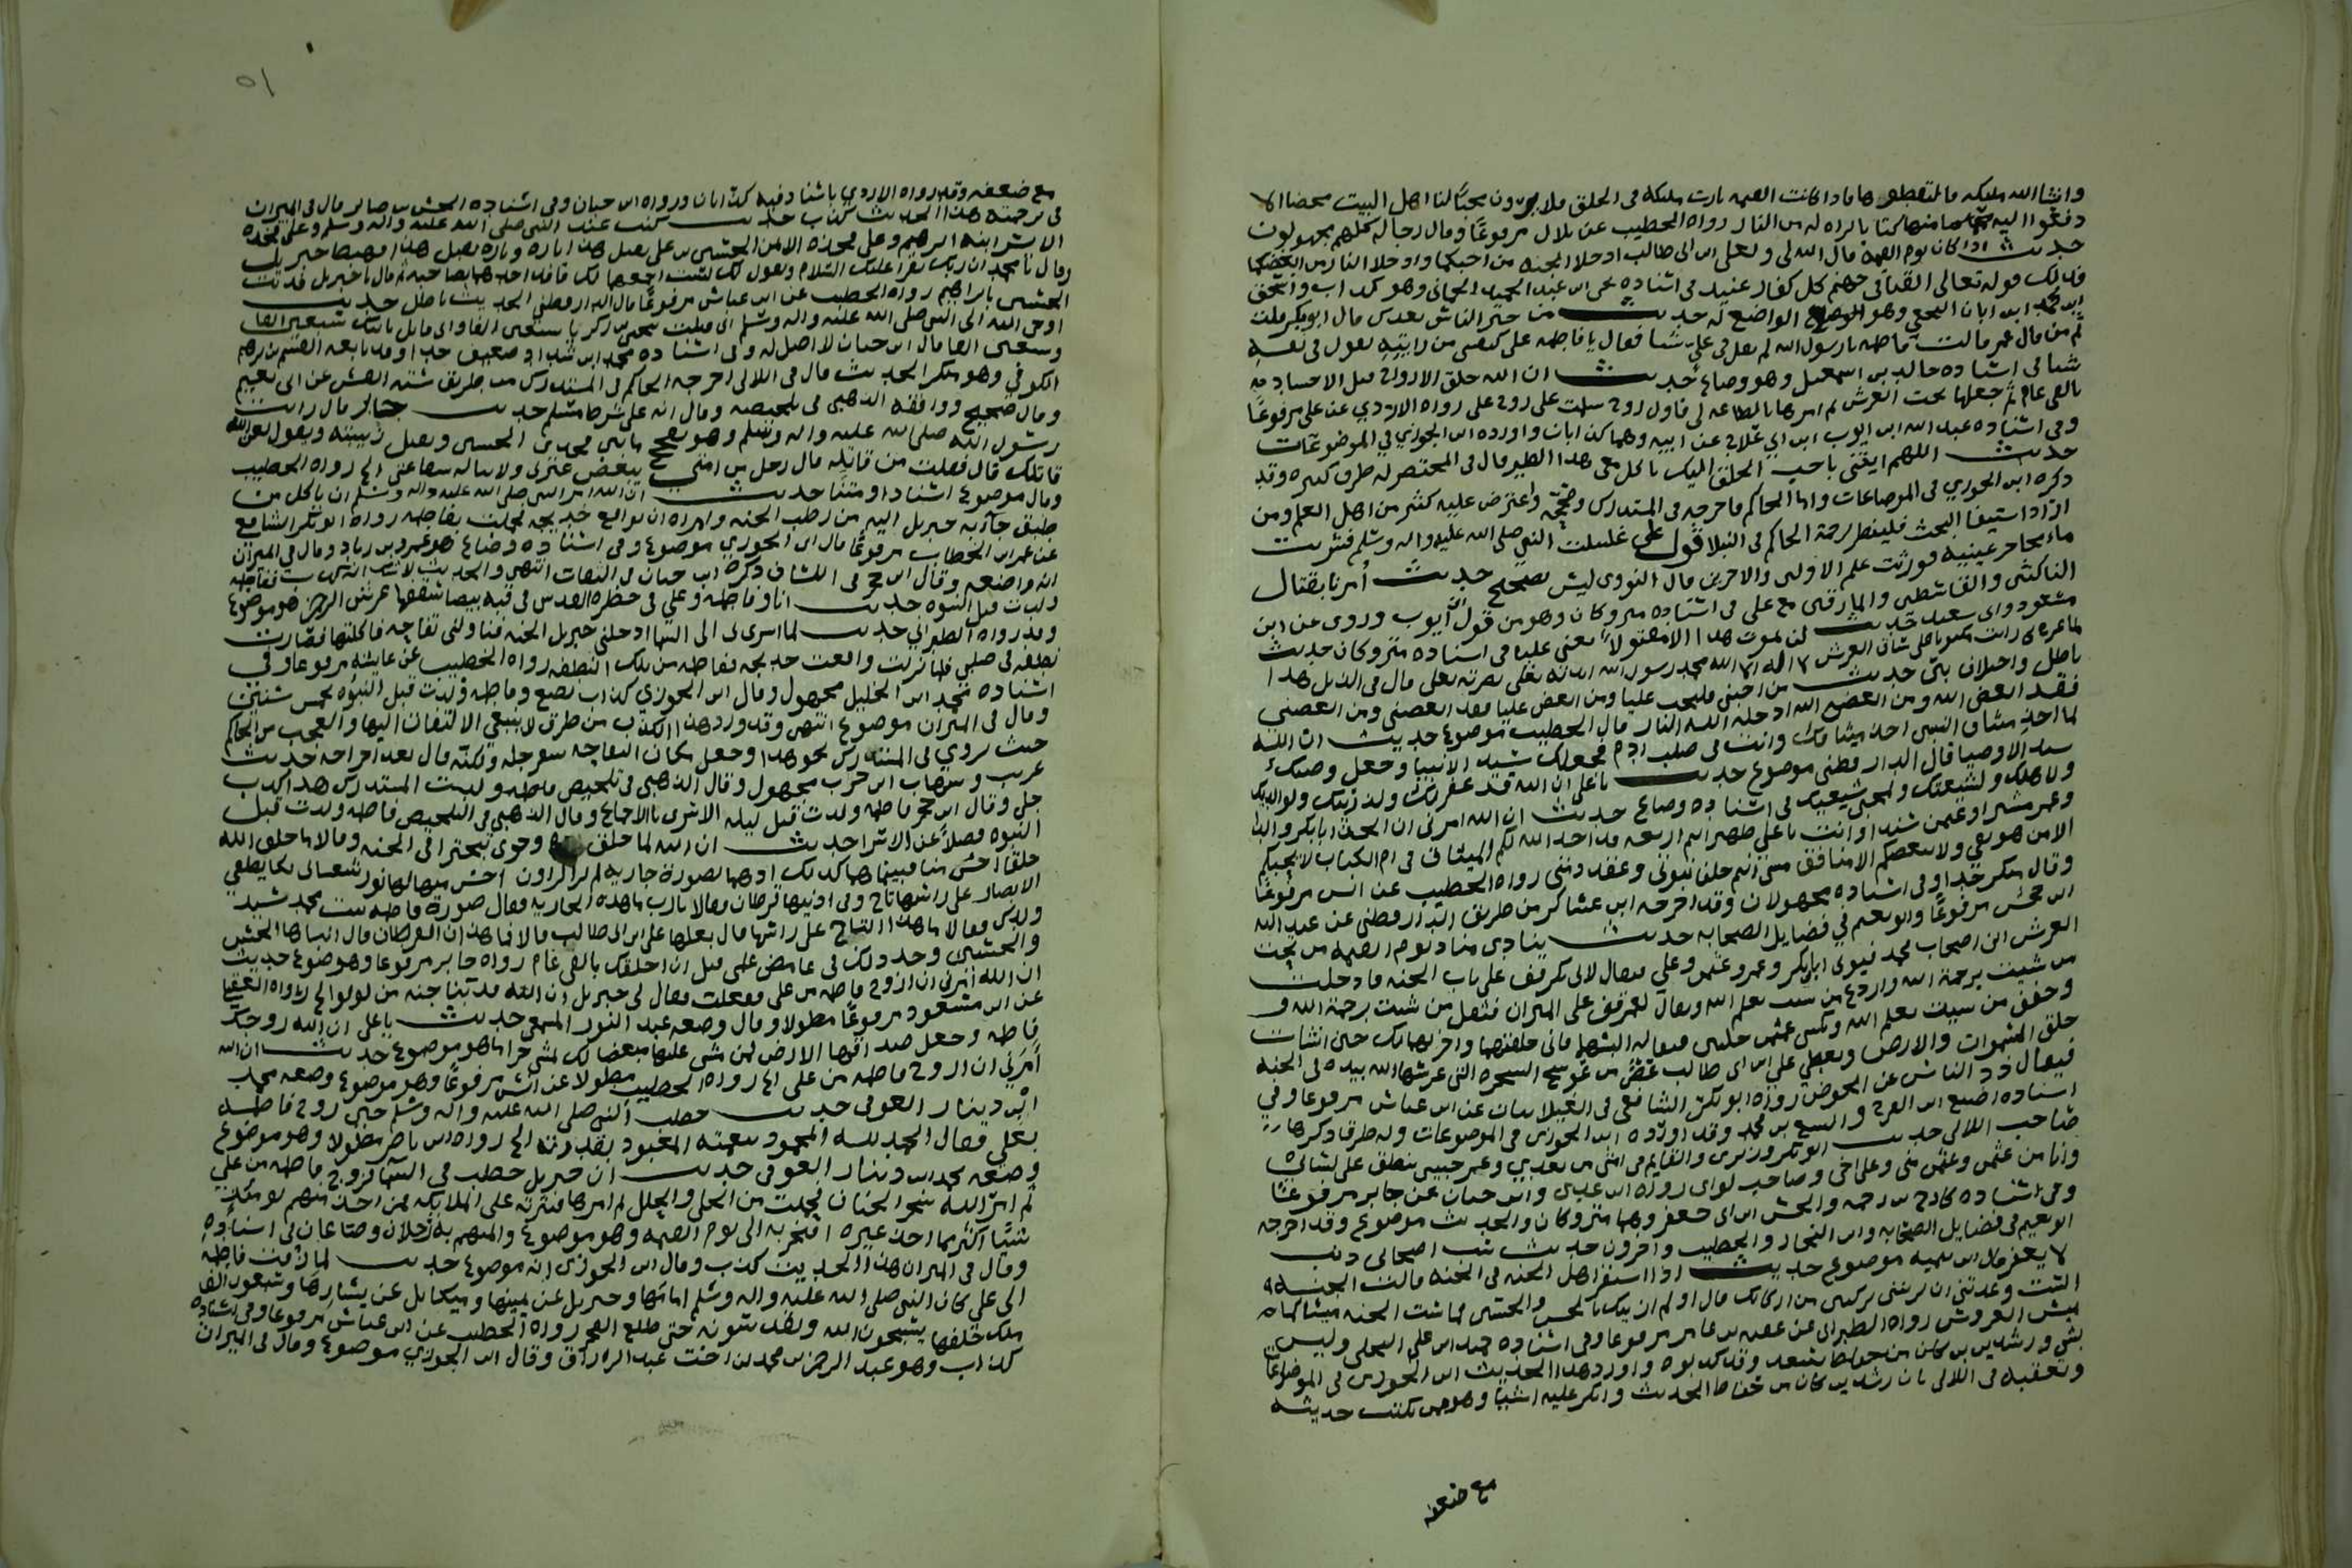 وانشا الله ملكه فالتقطوها فاذا كانت القيمه نادت ملكه فى الخلق فلا يرون محبا لنا اهل البيت محضا الا
دفعوا اليه منها كتابا براه له من النار رواه الخطيب عن بلال مرفوعًا وقال رجاله كلهم مجهولون
حديث اذا كان يوم القيمة قال الله لى ولعلى ابن ابى طالب ادخلا الجنه من احبكما وادخلا النار من ابغضكما
فذلك قوله تعالى القيا فى جهنم كل كفار عنيد فى اسناده يحى ابن عبد الحميد الحمانى وهو كذاب واسحق
ابن محمد ابن ابان النخعي وهو الواضع له حديث من خير الناس بعدك قال ابوبكر قلت
ثم من قال عمر قالت فاطمه يارسول الله لم تقل فى علي شيا فقال يا فاطمه على كنفسى من رايتيه يقول فى نفسه
شيا فى اسناده خالد بن اسمعيل وهو وضاع حديث ان الله خلق الارواح قبل الاجساد
بالفى عام ثم جعلها تحت العرش ثم امرها بالطاعه لى فاول روح سلمت على روح على رواه الازدي عن على مرفوعًا
وفى اسناده عبد الله ابن ايوب ابن ابي علاج عن ابيه وهما كذابان واورده ابن الجوزي في الموضوعات
حديث اللهم ايتنى باحب الخلق اليك ياكل معى هذا الطير قال فى المختصر له طرق كثيره وقد
ذكره ابن الجوزي فى الموضاعات واما الحاكم فاخرجه فى المستدرك وصححه واعترض عليه كثير من اهل العلم ومن
اراد استيفا البحث فلينظر ترجمة الحاكم فى النبلا قول على غسلت النبي صلى الله عليه واله وسلم فشربت
ماء محاجر عينيه فورثت علم الاولين والاخرين قال النووى ليس بصحيح حديث أمرنا بقتال
الناكثين والقاسطين والمارقين مع على فى اسناده متروكان وهو من قول أبى ايوب وروى عن ابن
مسعود وابى سعيد حديث لن يموت هذا الا مقتولا يعنى عليه فى اسناده متروكان حديث
لما عرج بى رايت مكتوبا على ساق العرش لا اله الا الله محمد رسول الله ايدته بعلى نصرته بعلى قال فى الذيل هذا
باطل واختلاق بيّن حديث من احبنى فليحب عليا ومن ابغض عليا فقد ابغضنى ومن ابغضنى
فقد ابغض الله ومن ابغض الله ادخله الله النار قال الخطيب موضوع حديث ان الله
لما اخذ ميثاق النبيين اخذ ميثاقك وانت فى صلب ادم فجعلك سيد الانبيا وجعل وصيك
سيد الاوصيا قال الدارقطنى موضوع حديث يا على ان الله قد غفر لك ولذريتك ولوالديك
ولاهلك ولشيعتك ولمحبى شيعتك فى اسناده وضاع حديث ان الله امرنى ان اتخذ ابابكر والدا
وعمر مشيرا وعثمن سندا وانت يا علي ظهيرا انتم اربعه قد اخذ الله لكم الميثاق فى ام الكتاب لا يحبكم
الا مومن تقي ولا يبغضكم الا منافق شقى انتم خلفا نبوتى وعقد ذمتى رواه الخطيب عن انس مرفوعًا
وقال منكر جدا وفى اسناده مجهولان وقد اخرجه ابن عساكر من طريق الدارقطنى عن عبد الله
مرفوعًا وابو نعيم في فضايل الصحابه حديث ينادى مناد يوم القيمه من تحت
العرش اين اصحاب محمد فيوتى ابابكر وعمر وعثمن وعلي فيقال لابى بكر قف على باب الجنه فادخل
من شيت برحمة الله واردع من شيت بعلم الله ويقال لعمر قف على الميزان فثقل من شيت برحمة الله
وخفف من شيت بعلم الله ويكسى عثمن حلتين فيقال له البسهما فانى خلقتهما واخرتهما لك حين انشات
خلق السموات والارض ويعطى على ابن ابى طالب عصى من عوسج الشجره التى غرسها الله بيده فى الجنه
فيقال ذد الناس عن الحوض رواه ابوبكر الشافعى فى الغيلانيات عن ابن عباس مرفوعا وفي
اسناده اصبغ ابن الفرج واليسع بن محمد وقد اورده ابن الجوزى فى الموضوعات وله طرق ذكرها
صاحب اللالى حديث ابوبكر وزيرى والقايم فى امتى من بعدي وعمر حبيبى ينطق على لسانى
وانا من عثمن وعثمن منى وعلى اخى وصاحب لواى رواه ابن عدى وابن حبان عن جابر مرفوعًا
وفى اسناده كادح بن رحمه والحسن ابن ابى جعفر وهما متروكان والحديث موضوع وقد اخرجه
ابونعيم فى فضايل الصحابه وابن النجار والخطيب واخرون حديث سب اصحابى ذنب
لا يغفر قال ابن تيميه موضوع حديث اذا استقر اهل الجنه فى الجنه قالت الجنه
الست وعدتنى ان تزيننى بركنين من اركانك قال اولم ازينك بالحسن والحسين فماست الجنه ميسا كما
تميس العروس رواه الطبرانى عن عقبه بن عامر مرفوعا وفى اسناده حميد ابن على البجلى وليس
بشى ورشدين بن سعد وقد كذبوه واورد هذا الحديث ابن الجوزى فى الموضوعات
وتعقبه فى اللالى بان رشدين كان من حفاظ الحديث وانكر عليه اشيا وهو ممن يكتب حديثه
مع ضعفه
٥١
مع ضعفه وقد رواه الازدي باسناد فيه كذابان ورواه ابن حبان وفى اسناده الحسن بن صابر قال فى الميزان
فى ترجمته هذا الحديث كذب حديث كنت عند النبى صلى الله عليه واله وسلم وعلى فخذه
الايسر ابنه ابرهيم وعلى فخذه الايمن الحسين بن على يقبل هذا تاره وتاره يقبل هذا فهبط جبريل
وقال يا محمد ان ربك يقرا عليك السلام ويقول لك لست اجمعهما لك فافد احدهما بصاحبه قال يا جبريل فديت
الحسين بابراهيم رواه الخطيب عن ابن عباس مرفوعًا قال الدارقطنى الحديث باطل حديث
اوحى الله الى النبي صلى الله عليه واله وسلم انى قتلت بيحى بن زكريا سبعين الفا وانى قاتل بابن بنتك سبعين الفا
وسبعين الفا قال ابن حبان لا اصل له وفى اسناده محمد ابن شداد ضعيف جدا وقد تابعه القسم بن ابرهيم
الكوفي وهو منكر الحديث قال فى اللالى اخرجه الحاكم فى المستدرك من طريق سته انفس عن ابى نعيم
وقال صحيح ووافقه الذهبى فى تلخيصه وقال انه على شرط مسلم حديث جابر قال رايت
رسول الله صلى الله عليه واله وسلم وهو يفحج ما بين فخذى الحسين ويقبل زبيبته ويقول لعن الله
قاتلك قال فقلت من قاتله قال رجل من امتى يبغض عترتى ولا يناله شفاعتى الخ رواه الخطيب
وقال موضوع اسنادا ومتنا حديث ان الله امر النبى صلى الله عليه واله وسلم ان ياكل من
طبق جاء به جبريل اليه من رطب الجنه وامراه ان يواقع خديجه فحملت بفاطمه رواه ابوبكر الشافعي
عن عمر ابن الخطاب مرفوعًا قال ابن الجوزي موضوع وفى اسناده وضاع هو عمرو بن زياد وقال في الميزان
انه واضعه وقال ابن حجر فى اللسان ذكره ابن حبان فى الثقات انتهى والحديث
قبل النبوه حديث انا وفاطمه وعلي فى حظيره القدس فى قبه بيضا سقفها عرش الرحمن هو موضوع
وقد رواه الطبرانى حديث لما اسرى بى الى السما ادخلنى جبريل الجنه فناولنى تفاحه فاكلتها فصارت
نطفه فى صلبي فلما نزلت واقعت خديجه ففاطمه من تلك النطفه رواه الخطيب عن عايشه مرفوعا وفي
اسناده محمد ابن الخليل مجهول وقال ابن الجوزي كذاب يضع وفاطمه ولدت قبل النبوه بخمس سنين
وقال فى الميزان موضوع انتهى وقد ورد هذا الكذب من طرق لا ينبغي الالتفات اليها والعجب من الحاكم
حيث روي فى المستدرك نحو هذا وجعل مكان التفاحه سفرجله ولكنه قال بعد اخراجه حديث
غريب وشهاب ابن حرب مجهول وقال الذهبى فى تلخيص المستدرك هذا كذب
جلى وقال ابن حجر فاطمه ولدت قبل ليله الاسرى بالاجماع وقال الذهبى فى التلخيص فاطمه ولدت قبل
النبوه فضلاً عن الاسرا حديث ان الله لما خلق وحوى تبخترا فى الجنه وقالا ما خلق الله
خلقا احسن منا فبينما هما كذلك اذهما بصورة جاريه لم ير الراون احسن منها لها نور شعشعانى يكاد يطفي
الابصار على راسها تاج وفى اذنيها قرطان فقالا يا رب ما هذه الجاريه فقال صورة فاطمه بنت محمد سيد
ولدك فقالا ما هذا التاج على راسها قال بعلها على ابن ابى طالب قالا فما هذان القرطان قال ابناها الحسن
والحسين وجد ذلك فى غامض علمى قبل ان اخلقك بالفى عام رواه جابر مرفوعا وهو موضوع حديث
ان الله امرنى ان ازوج فاطمه من على ففعلت فقال لى جبريل ان الله قد بنا جنه من لولو الخ رواه العقيلى
عن ابن مسعود مرفوعًا مطولا وقال وضعه عبد النور المسمعى حديث يا على ان الله زوجك
فاطمه وجعل صداقها الارض فمن مشى عليها مبغضا لك مشى حراما هو موضوع حديث ان الله
أمرنى ان ازوج فاطمه من على الخ رواه الخطيب مطولا عن انس مرفوعًا وهو موضوع وضعه محمد
ابن دينار العوفى حديث خطب النبى صلى الله عليه واله وسلم حين زوج فاطمه
بعلى فقال الحمد لله المحمود بنعمته المعبود بقدرته الخ رواه ابن ناصر مطولا وهو موضوع
وضعه محمد ابن دينار العوفى حديث ان جبريل خطب فى السما تزويج فاطمه من علي
ثم امر الله شجر الجنان فحملت من الحلى والحلل ثم امرها فنثرته على الملايكه فمن اخذ منهم يومئذ
شيًا اكثر مما اخذ غيره افتخر به الى يوم القيمه وهو موضوع والمتهم به رجلان وضاعان فى اسناده
وقال فى الميزان هذا الحديث كذب وقال ابن الجوزى انه موضوع حديث لما زفت فاطمه
الى على كان النبى صلى الله عليه واله وسلم امامها وجبريل عن يمينها وميكايل عن يسارها وسبعون الف
ملك خلفها يسبحون الله ويقدسونه حتى طلع الفجر رواه الخطيب عن ابن عباس مرفوعا وفى اسناده
كذاب وهو عبد الرحمن بن محمد بن اخت عبد الرزاق وقال ابن الجوزي موضوع وقال فى الميزان